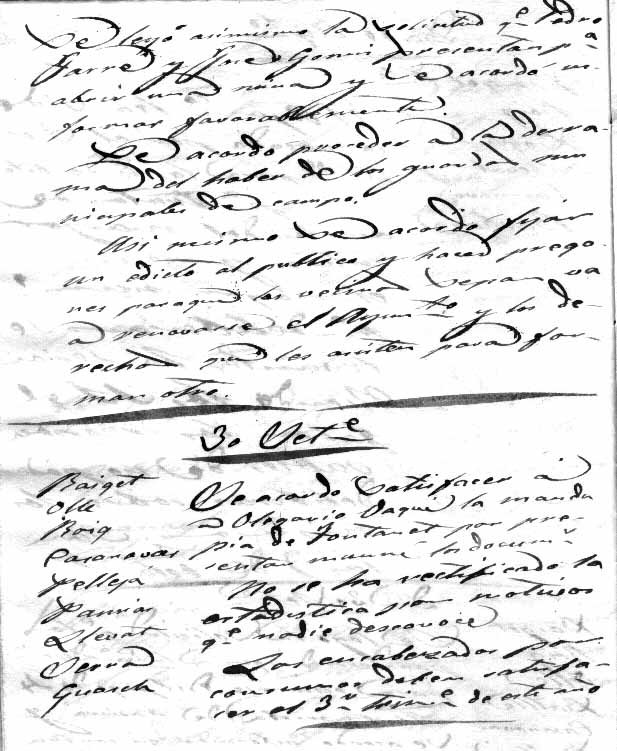 Se leyó asimismo la solicitud qe Pedro
Farré y Jne Gomis presentan pa
abrir una mina y se acordó in-
formar favorablemente.
Se acordo proceder a la derra-
ma del haber de los guardas mu
nicipales de campo.
Asi mismo se acordó fijar
un edicto al publico y hacer prego-
nes para que los vecinos sepan va
a renovarse el Apunto y los de-
rechos que les asisten para for-
mar otro.
30 Sete
Baiget
Olle
Roig
Casanovas
Pellejá
Pamias
Llevat
Serra
Guasch
Se acordo satisfacer á
Olegario Daqui la manda
pia de Fontanet por pre-
sentar los docums
No se ha rectificado la
estadistica por motivos
qe nadie desconoce
Los encabezados por
consumos deben satisfa-
cer el 3r trime de este año